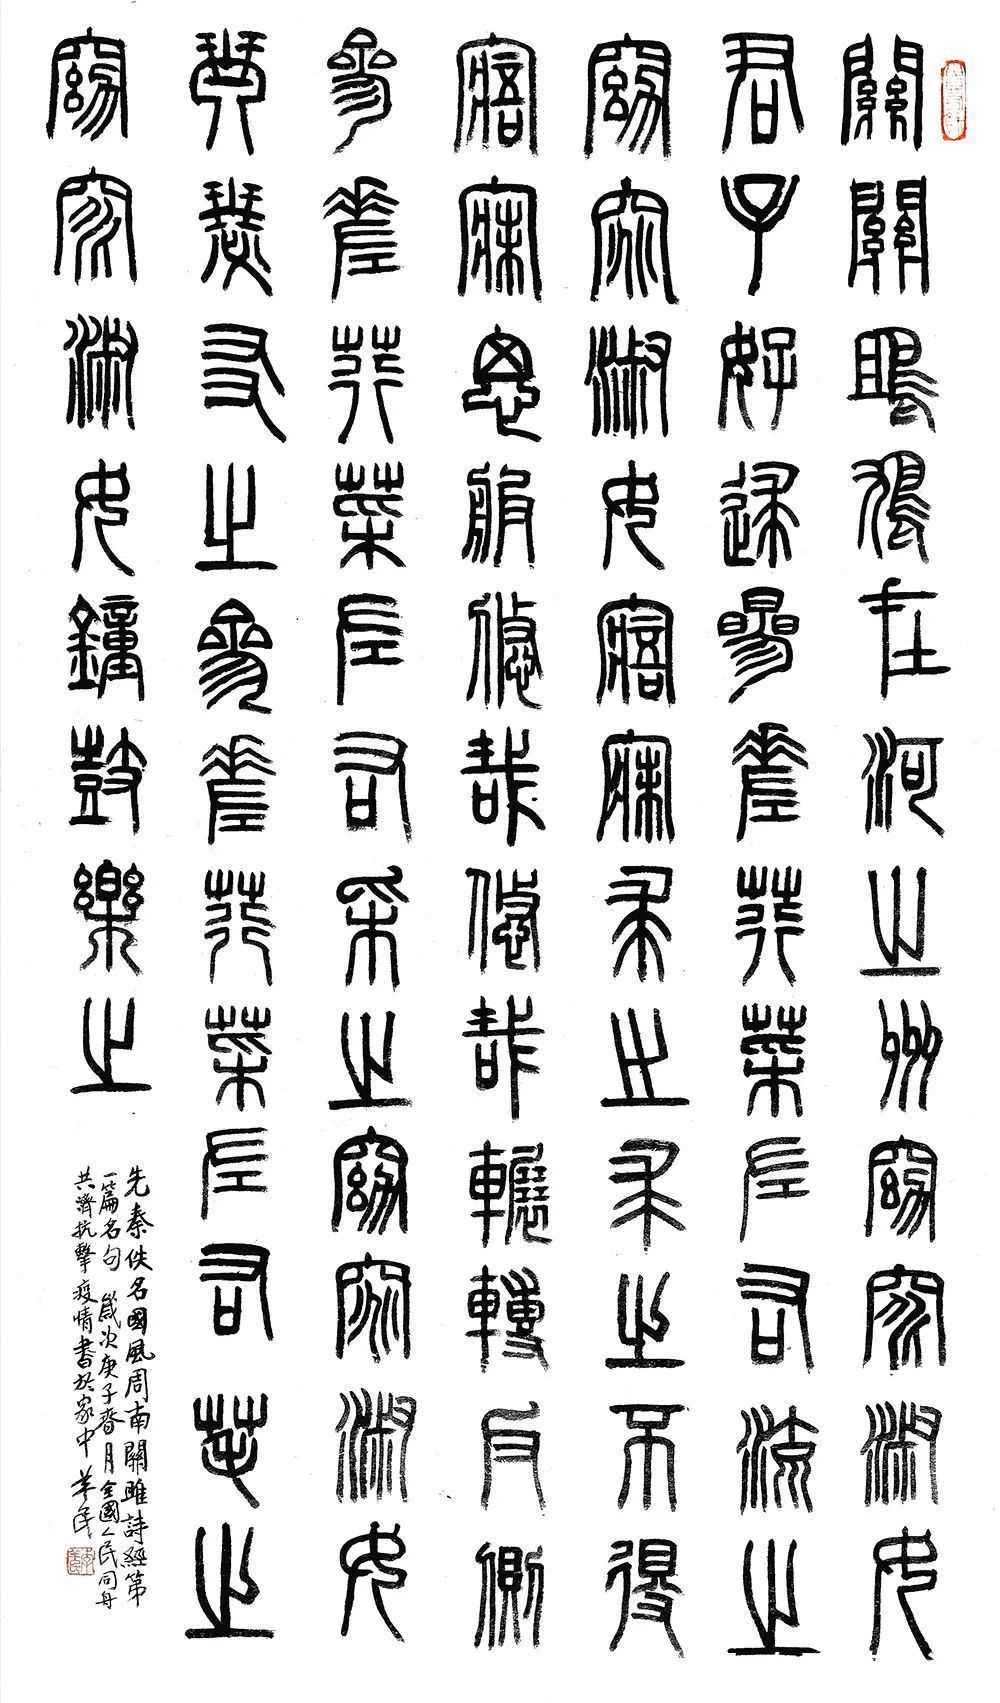 關關鴡鳩在河之州窈窕淑女
君子好逑參差荇菜左右流之
窈窕淑女寤寐求之求之不得
寤寐思服悠哉悠哉輾轉反側
參差荇菜左右采之窈窕淑女
琴瑟友之參差荇菜左右芼之
窈窕淑女鐘鼓樂之
先秦佚名國風周南關雎詩經第
一篇名句 歲次庚子春月全國人民同舟
共濟抗擊疫情書於家中